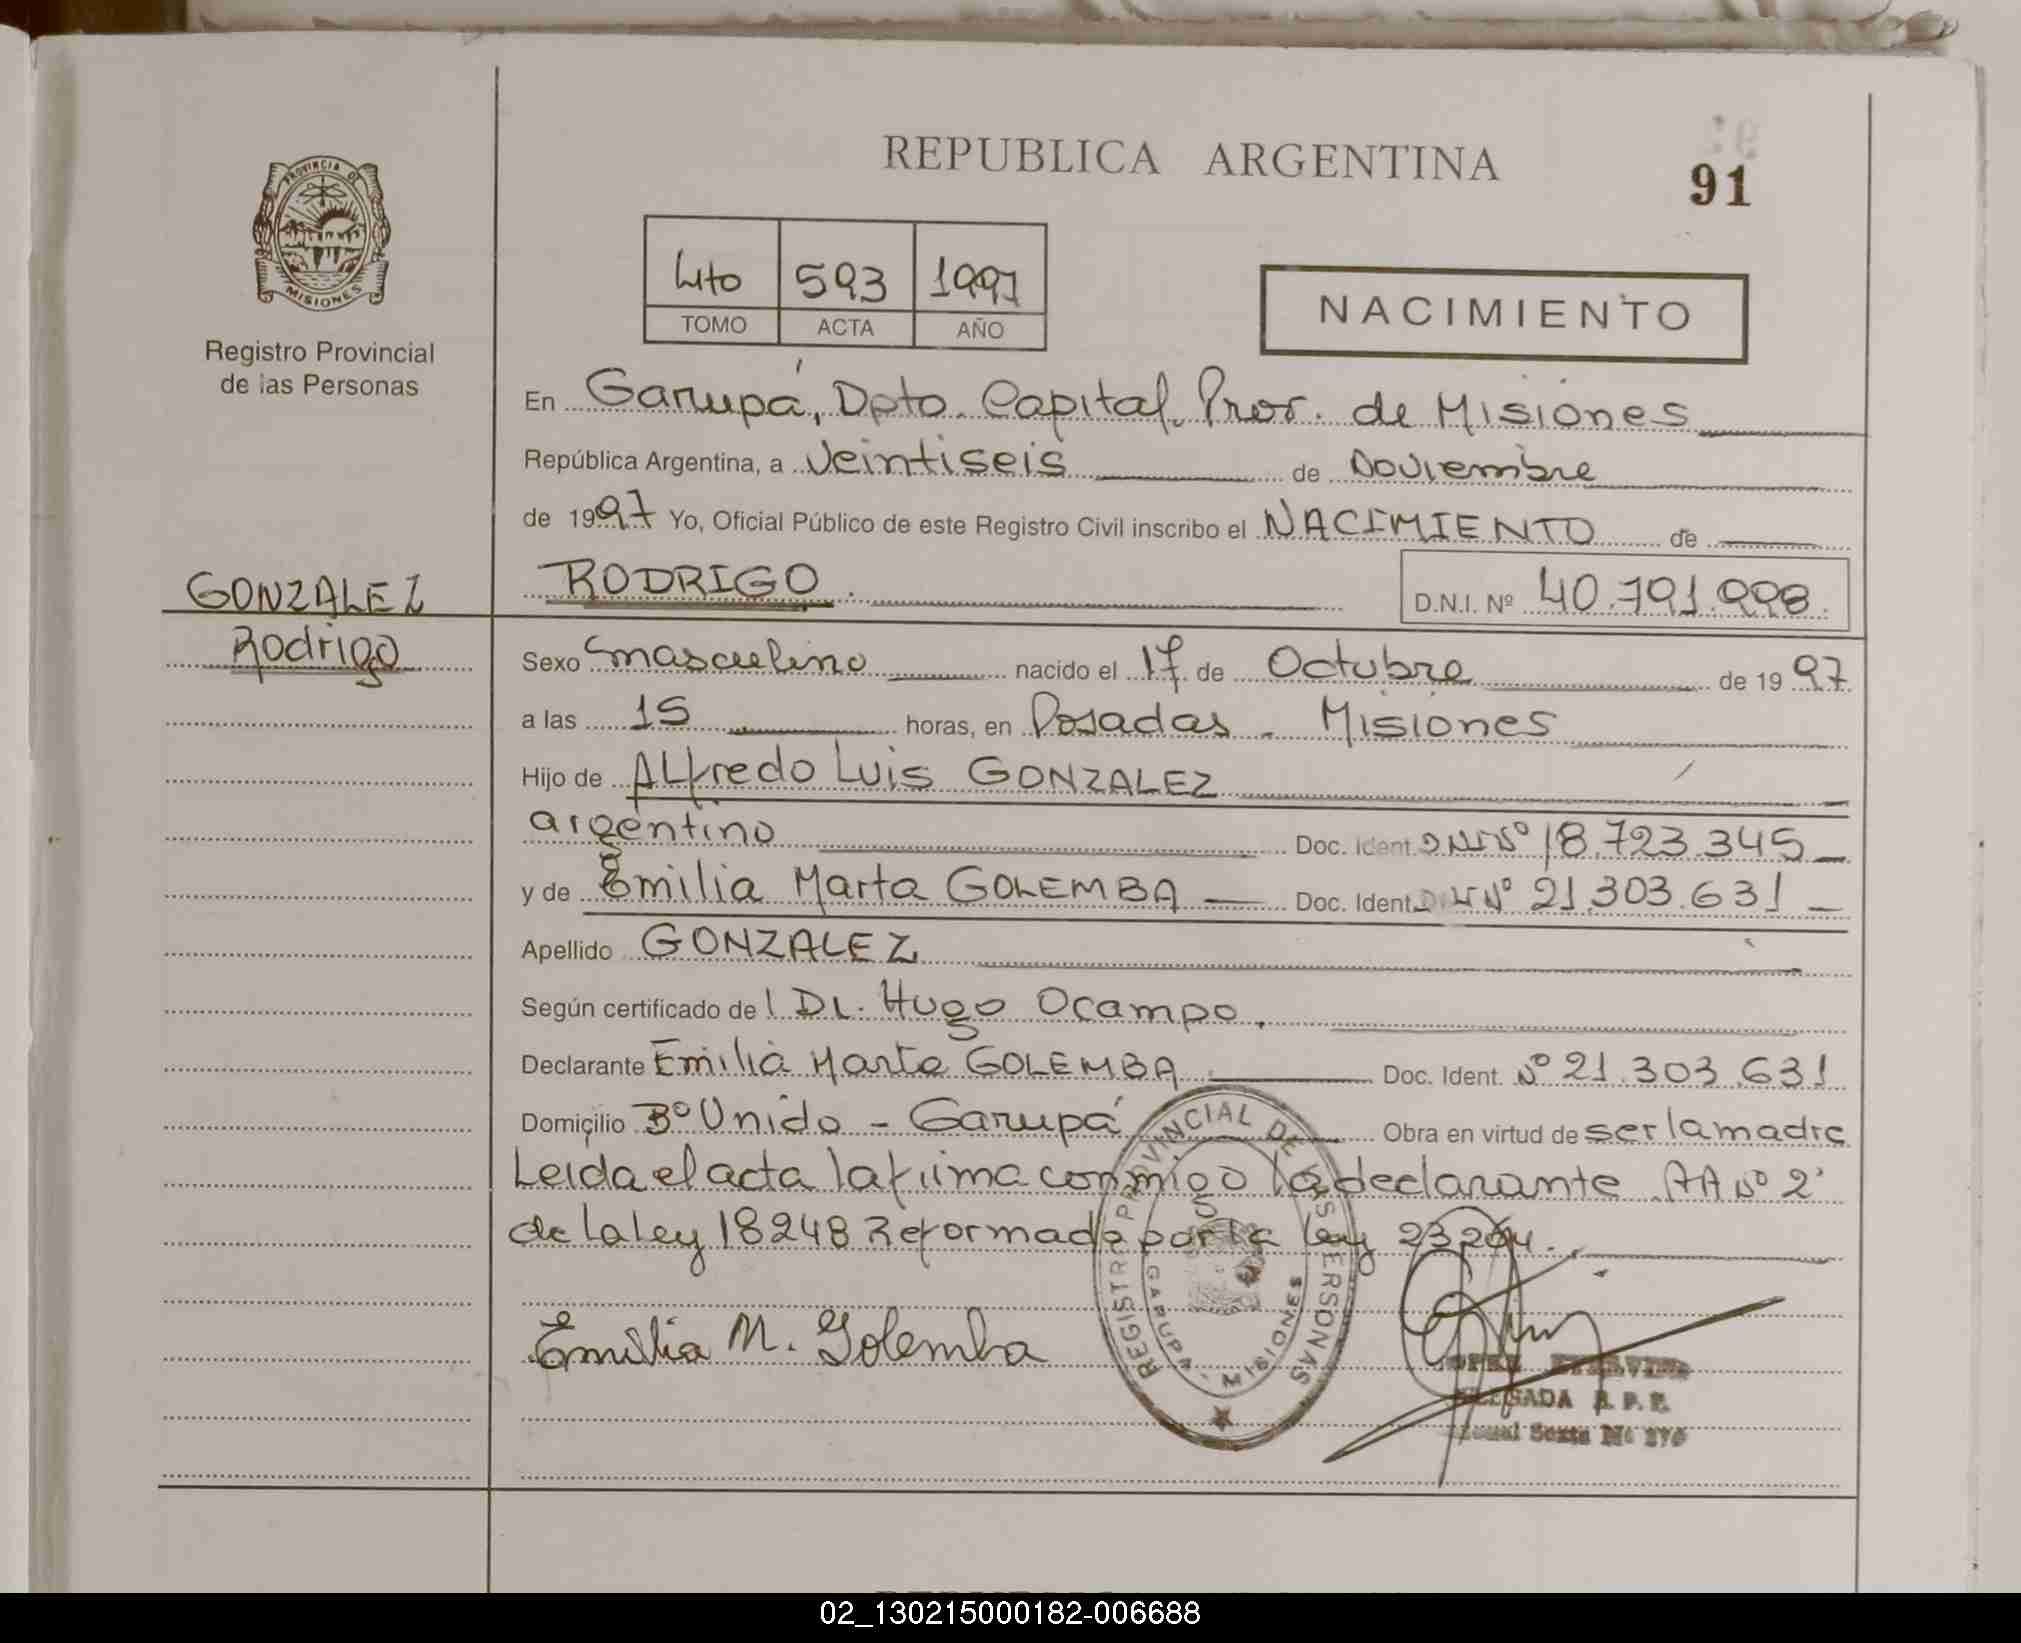 REPUBLICA ARGENTINA
91
PROVINCIA DE
MISIONES
Registro Provincial
de las Personas
4to 593 1997
TOMO ACTA AÑO
NACIMIENTO
En Garupá, Dpto. Capital. Prov. de Misiones
República Argentina, a veintiseis de Noviembre
de 1997 Yo, Oficial Público de este Registro Civil inscribo el NACIMIENTO de
GONZALEZ
Rodrigo
RODRIGO. D.N.I. Nº 40.791.998.
Sexo masculino nacido el 17 de Octubre de 1997
a las 15 horas, en Posadas - Misiones
Hijo de Alfredo Luis GONZALEZ
argentino Doc. Ident. DNI Nº 18.723.345
y de Emilia Marta GOLEMBA Doc. Ident. Nº 21.303.631
Apellido GONZALEZ
Según certificado del Dr. Hugo Ocampo.
Declarante Emilia Marta GOLEMBA Doc. Ident. Nº 21.303.631
Domicilio Bº Unido - Garupá Obra en virtud de ser la madre
Leida el acta la firma conmigo la declarante. AA Nº 2
de la ley 18248 Reformada por la ley 23264.
Emilia M. Golemba
REGISTRO PROVINCIAL DE LAS PERSONAS
GARUPA - MISIONES
DELEGADA R. P. P.
02_130215000182-006688